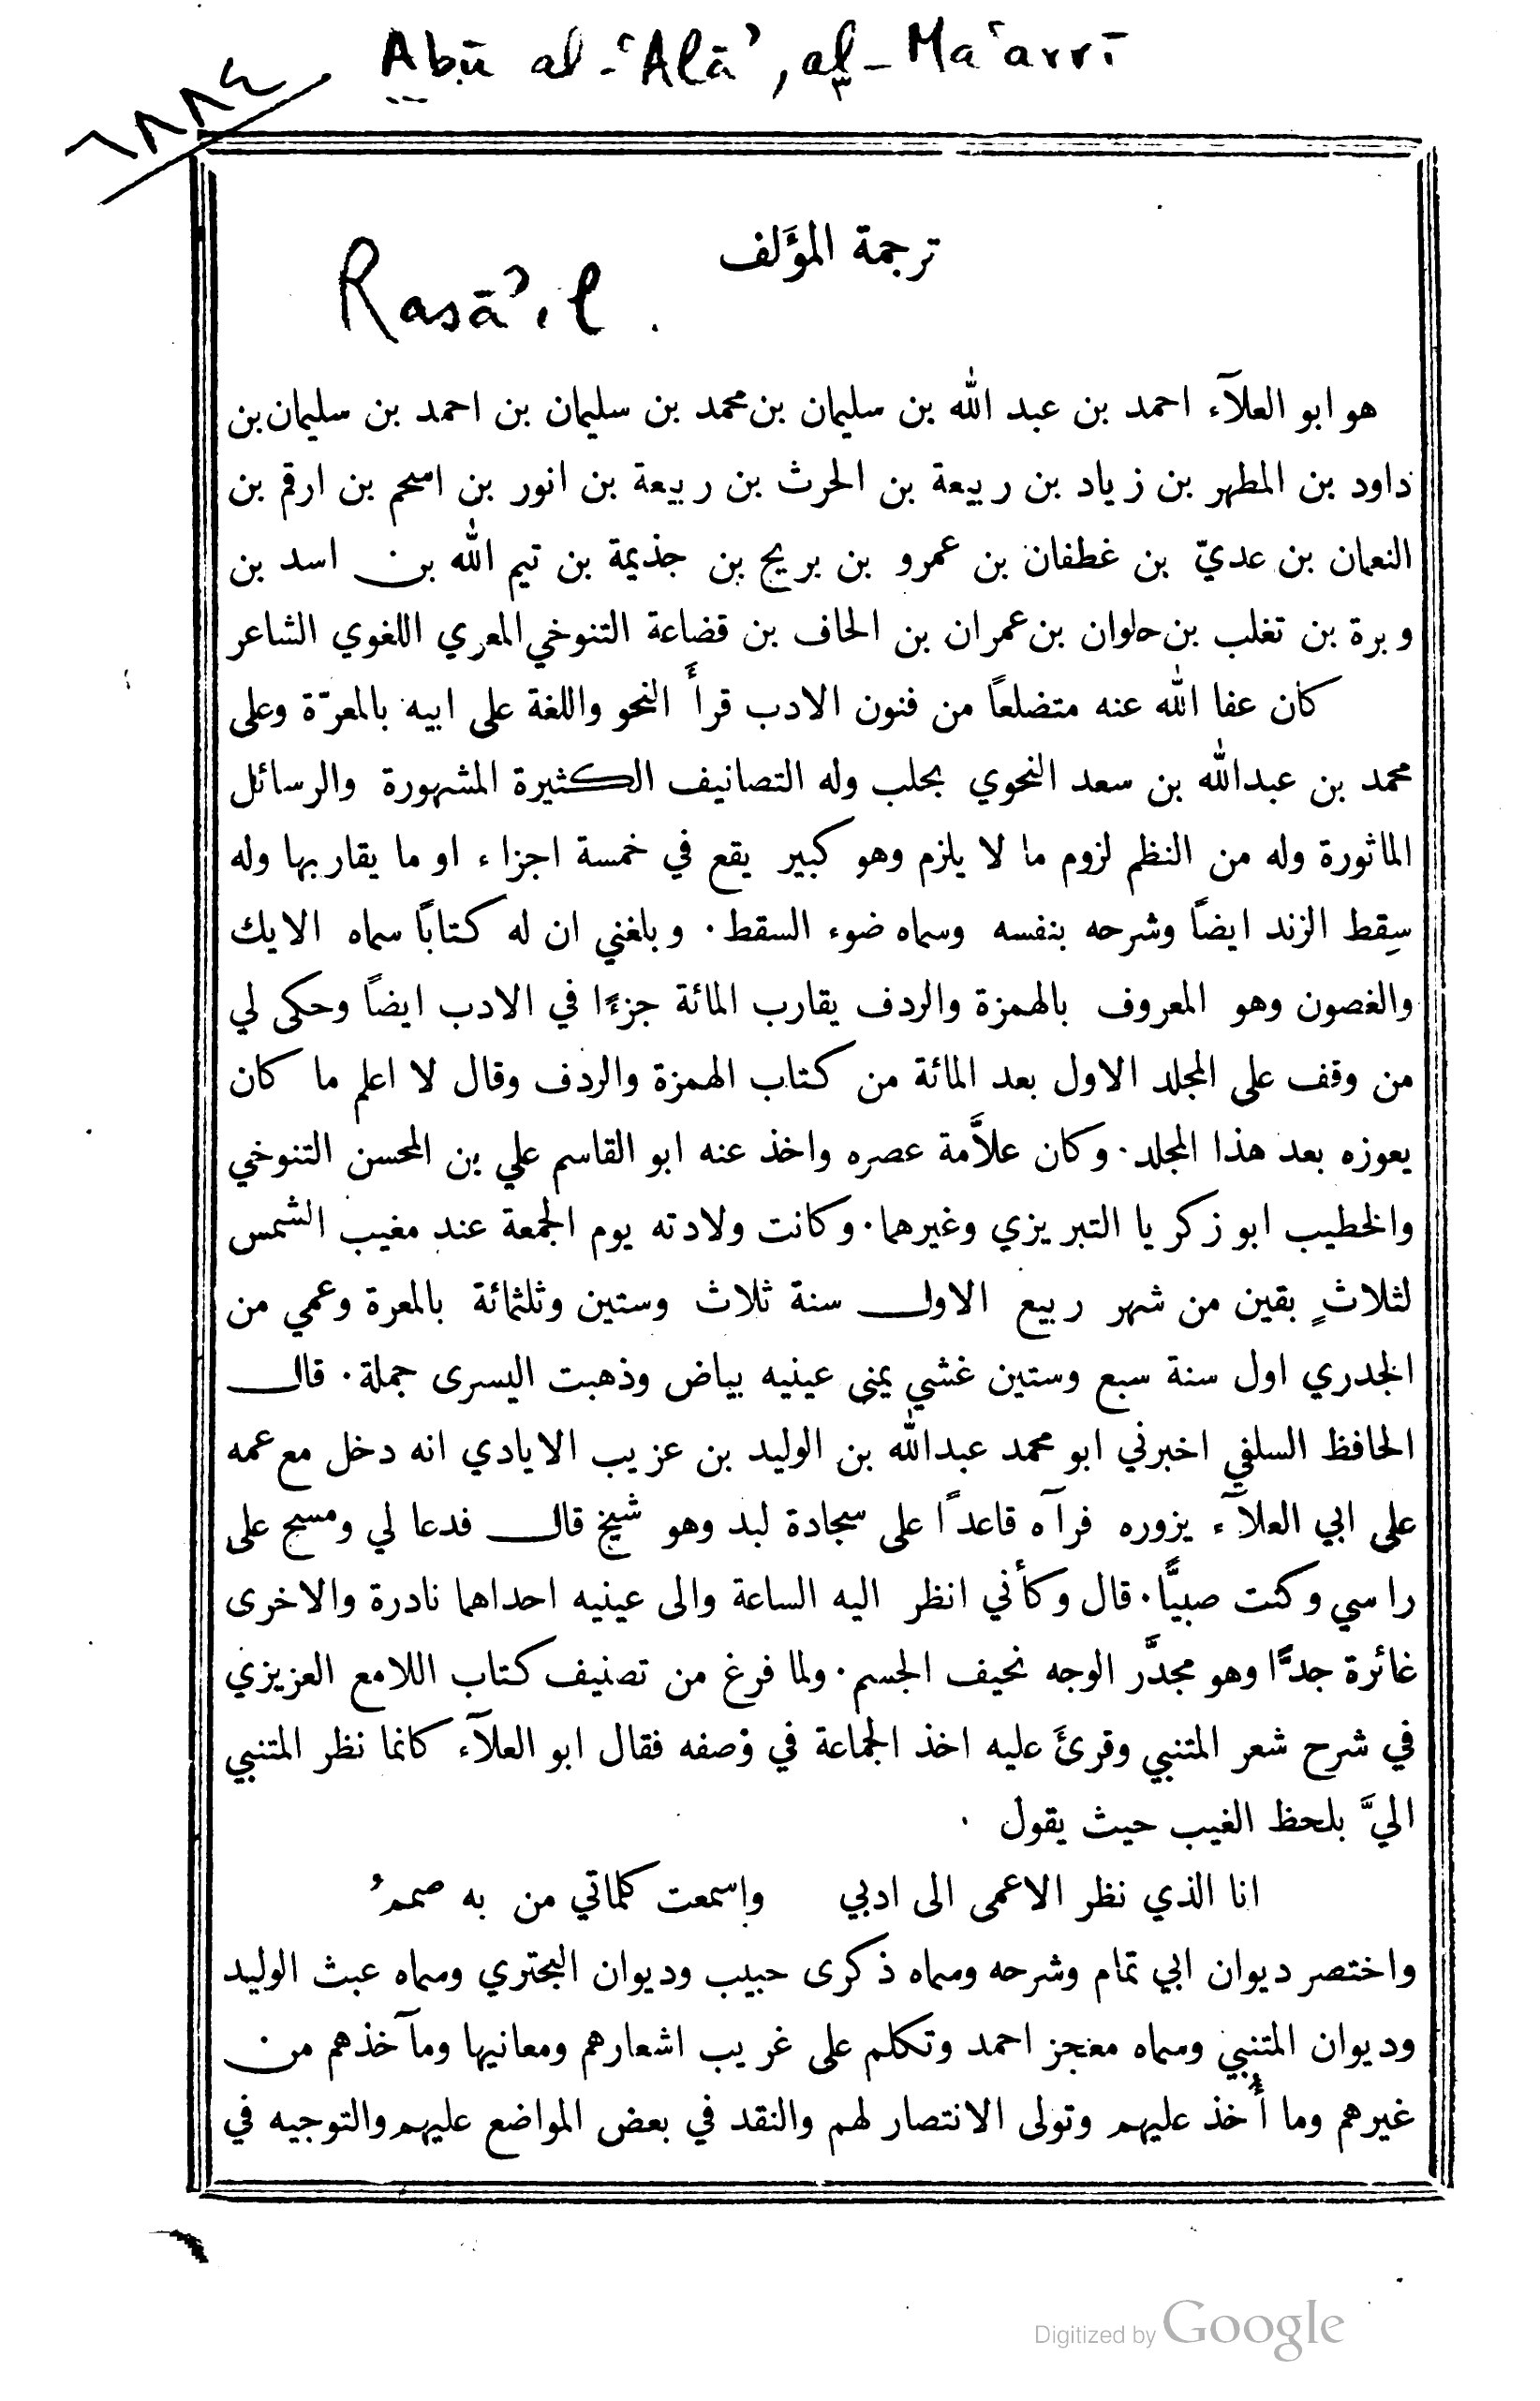 Abū al-ʿAlāʾ, al-Maʿarrī
٦٨٨٤
ترجمة المؤَلف
Rasāʾil.
هو ابو العلآء احمد بن عبد الله بن سليمان بن محمد بن سليمان بن احمد بن سليمان بن
داود بن المطهر بن زياد بن ربيعة بن الحرث بن ربيعة بن انور بن اسحم بن ارقم بن
النعمان بن عديّ بن غطفان بن عمرو بن بريح بن جذيمة بن تيم الله بن اسد بن
وبرة بن تغلب بن حلوان بن عمران بن الحاف بن قضاعة التنوخي المعري اللغوي الشاعر
كان عفا الله عنه متضلعاً من فنون الادب قرأَ النحو واللغة على ابيه بالمعرّة وعلى
محمد بن عبدالله بن سعد النحوي بحلب وله التصانيف الكثيرة المشهورة والرسائل
الماثورة وله من النظم لزوم ما لا يلزم وهو كبير يقع في خمسة اجزاء او ما يقاربها وله
سِقط الزند ايضاً وشرحه بنفسه وسماه ضوء السقط. وبلغني ان له كتاباً سماه الايك
والغصون وهو المعروف بالهمزة والردف يقارب المائة جزءًا في الادب ايضاً وحكى لي
من وقف على المجلد الاول بعد المائة من كتاب الهمزة والردف وقال لا اعلم ما كان
يعوزه بعد هذا المجلد. وكان علاَّمة عصره واخذ عنه ابو القاسم علي بن المحسن التنوخي
والخطيب ابو زكريا التبريزي وغيرهما. وكانت ولادته يوم الجمعة عند مغيب الشمس
لثلاثٍ بقين من شهر ربيع الاول سنة ثلاث وستين وثلثمائة بالمعرة وعمي من
الجدري اول سنة سبع وستين غشي يمنى عينيه بياض وذهبت اليسرى جملة. قال
الحافظ السلفي اخبرني ابو محمد عبدالله بن الوليد بن عزيب الايادي انه دخل مع عمه
على ابي العلآء يزوره فرآه قاعداً على سجادة لبد وهو شيخ قال فدعا لي ومسح على
راسي وكنت صبيًّا. قال وكأني انظر اليه الساعة والى عينيه احداهما نادرة والاخرى
غائرة جدًّا وهو مجدَّر الوجه نحيف الجسم. ولما فرغ من تصنيف كتاب اللامع العزيزي
في شرح شعر المتنبي وقرئَ عليه اخذ الجماعة في وصفه فقال ابو العلآء كانما نظر المتنبي
اليَّ بلحظ الغيب حيث يقول
انا الذي نظر الاعمى الى ادبي واسمعت كلماتي من به صممُ
واختصر ديوان ابي تمام وشرحه وسماه ذكرى حبيب وديوان البحتري وسماه عبث الوليد
وديوان المتنبي وسماه معجز احمد وتكلم على غريب اشعارهم ومعانيها ومآخذهم من
غيرهم وما أُخذ عليهم وتولى الانتصار لهم والنقد في بعض المواضع عليهم والتوجيه في
Digitized by Google